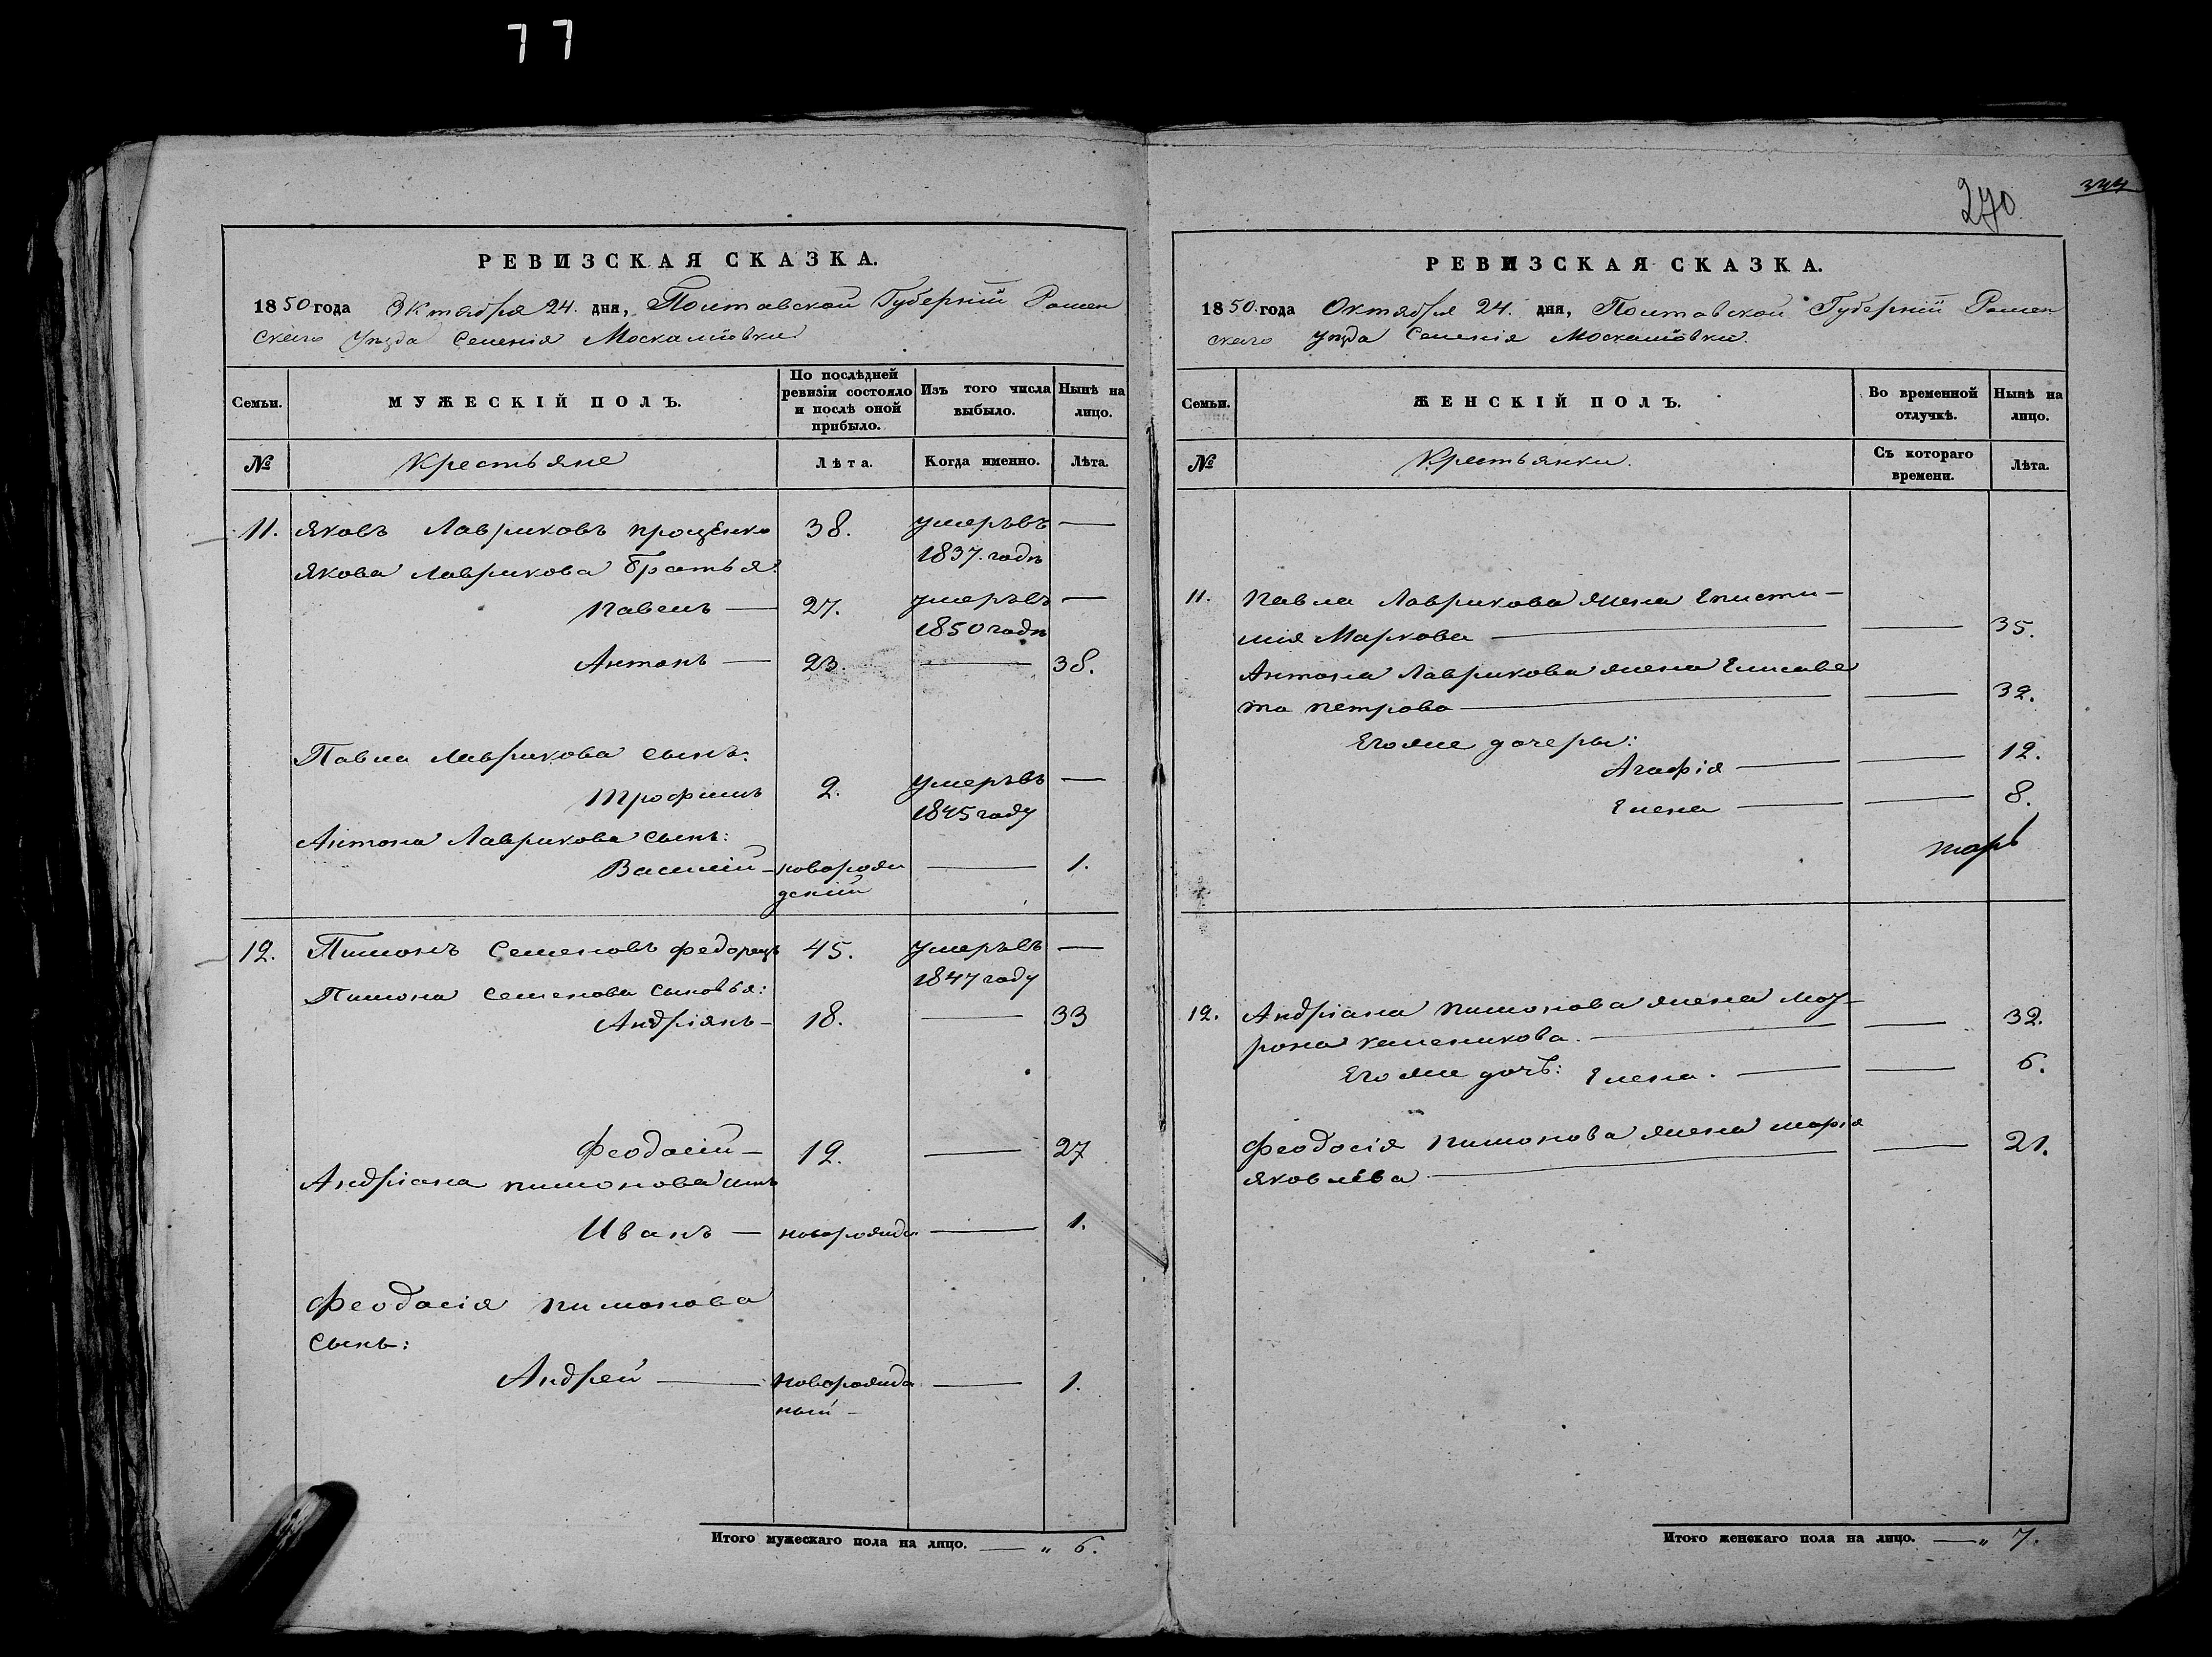 77
270
344
РЕВИЗСКАЯ СКАЗКА.
1850 года Октября 24. дня, Полтавской Губерніи Ромен
скаго уѣзда Селенія Москалиовки
Семьи.
МУЖЕСКІЙ ПОЛЪ.
По послѣдней ревизіи состояло и послѣ оной прибыло.
Изъ того числа выбыло.
Нынѣ на лицо.
№
Крестьяне
Лѣта.
Когда именно.
Лѣта.
11. Яковъ Лавриковъ Проценко 38. умеръвъ —
1837. годѣ
Якова Лаврикова Братья:
Павелъ — 27. умеръвъ —
1850 годѣ
Антонъ — 23. — 38.
Павла Лаврикова сынъ:
Трофимъ 2. умеръвъ —
1845 году
Антона Лаврикова сынъ:
Василій — новорож — 1.
12. Пимонъ Семеновъ Федорецъ 45. умеръвъ —
1847 году
Пимона Семенова сыновья:
Андріянъ — 18. — 33
Феодосій — 12. — 27
Андріана Пимонова
Иванъ — новорожд — 1.
Феодосія Пимонова
сынъ:
Андрей — новорожде — 1.
ный —
Итого мужескаго пола на лицо. — „ 6.
РЕВИЗСКАЯ СКАЗКА.
1850. года Октября 24. дня, Полтавской Губерніи Ромен
скаго уѣзда Селенія Москалиовки.
Семьи.
ЖЕНСКІЙ ПОЛЪ.
Во временной отлучкѣ.
Нынѣ на лицо.
№
Крестьянки.
Съ котораго времени.
Лѣта.
11. Павла Лаврикова жена Еписти—
мія Маркова — — 35.
Антона Лаврикова жена Елисаве
та Петрова — — 32.
Егоже дочеры:
Агафія — — 12.
Елена — — 8.
12. Андріана Пимонова жена Мот—
рона — — 32.
Егоже дочь: Елена. — — 6.
Феодосія Пимонова жена Марія
Яковлева — — 21.
Итого женскаго пола на лицо. — „ 7.